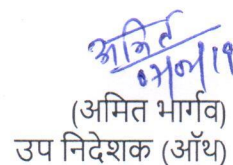 अमित
(अमित भार्गव)
उप निदेशक (ऑथ)